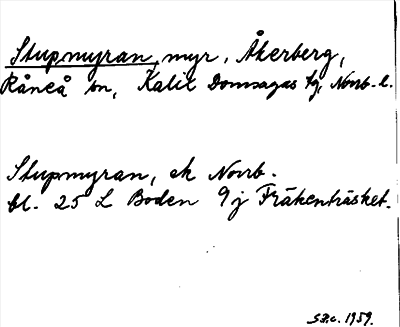 Stupmyran, myr, Åkerberg,
Råneå sn, Kalix Domsagas tg, Norrb. l.
Stupmyran, ek Norrb.
bl. 25 L Boden 9j Fräkenträsket.
1959.